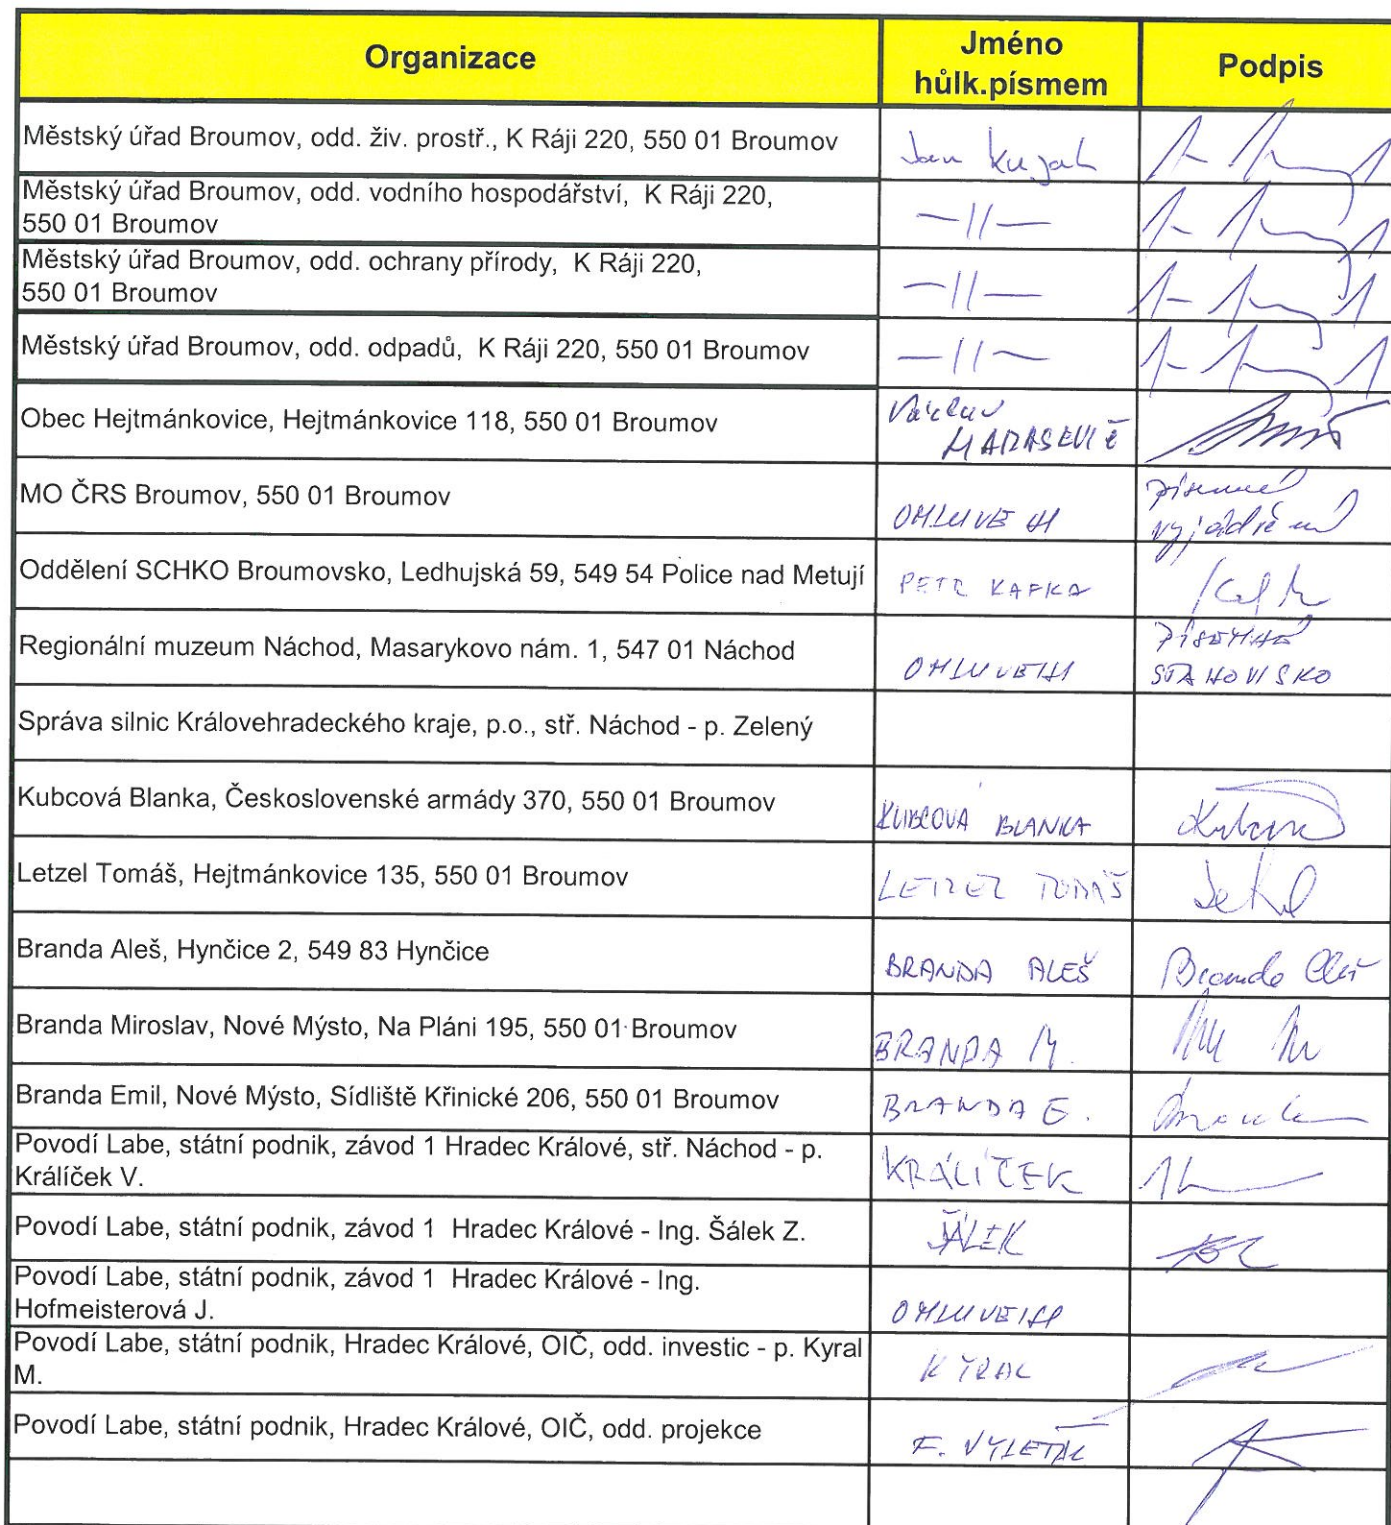 Organizace
Jméno
hůlk.písmem
Podpis
Městský úřad Broumov, odd. živ. prostř., K Ráji 220, 550 01 Broumov
Jan
Městský úřad Broumov, odd. vodního hospodářství, K Ráji 220,
550 01 Broumov
—||—
Městský úřad Broumov, odd. ochrany přírody, K Ráji 220,
550 01 Broumov
—||—
Městský úřad Broumov, odd. odpadů, K Ráji 220, 550 01 Broumov
—||—
Obec Hejtmánkovice, Hejtmánkovice 118, 550 01 Broumov
Václav
MO ČRS Broumov, 550 01 Broumov
OMLUVENI
písemné
vyjádření
Oddělení SCHKO Broumovsko, Ledhujská 59, 549 54 Police nad Metují
PETR KAFKA
Regionální muzeum Náchod, Masarykovo nám. 1, 547 01 Náchod
OMLUVENI
PÍSEMNÉ
STANOVISKO
Správa silnic Královehradeckého kraje, p.o., stř. Náchod - p. Zelený
Kubcová Blanka, Československé armády 370, 550 01 Broumov
KUBCOVÁ BLANKA
Letzel Tomáš, Hejtmánkovice 135, 550 01 Broumov
LETZEL TOMÁŠ
Branda Aleš, Hynčice 2, 549 83 Hynčice
BRANDA ALEŠ
Branda Aleš
Branda Miroslav, Nové Mýsto, Na Pláni 195, 550 01 Broumov
BRANDA M.
Branda Emil, Nové Mýsto, Sídliště Křinické 206, 550 01 Broumov
BRANDA E.
Povodí Labe, státní podnik, závod 1 Hradec Králové, stř. Náchod - p.
Králíček V.
KRÁLÍČEK
Povodí Labe, státní podnik, závod 1 Hradec Králové - Ing. Šálek Z.
ŠÁLEK
Povodí Labe, státní podnik, závod 1 Hradec Králové - Ing.
Hofmeisterová J.
OMLUVENA
Povodí Labe, státní podnik, Hradec Králové, OIČ, odd. investic - p. Kyral
M.
KYRAL
Povodí Labe, státní podnik, Hradec Králové, OIČ, odd. projekce
F. VYLEŤAL